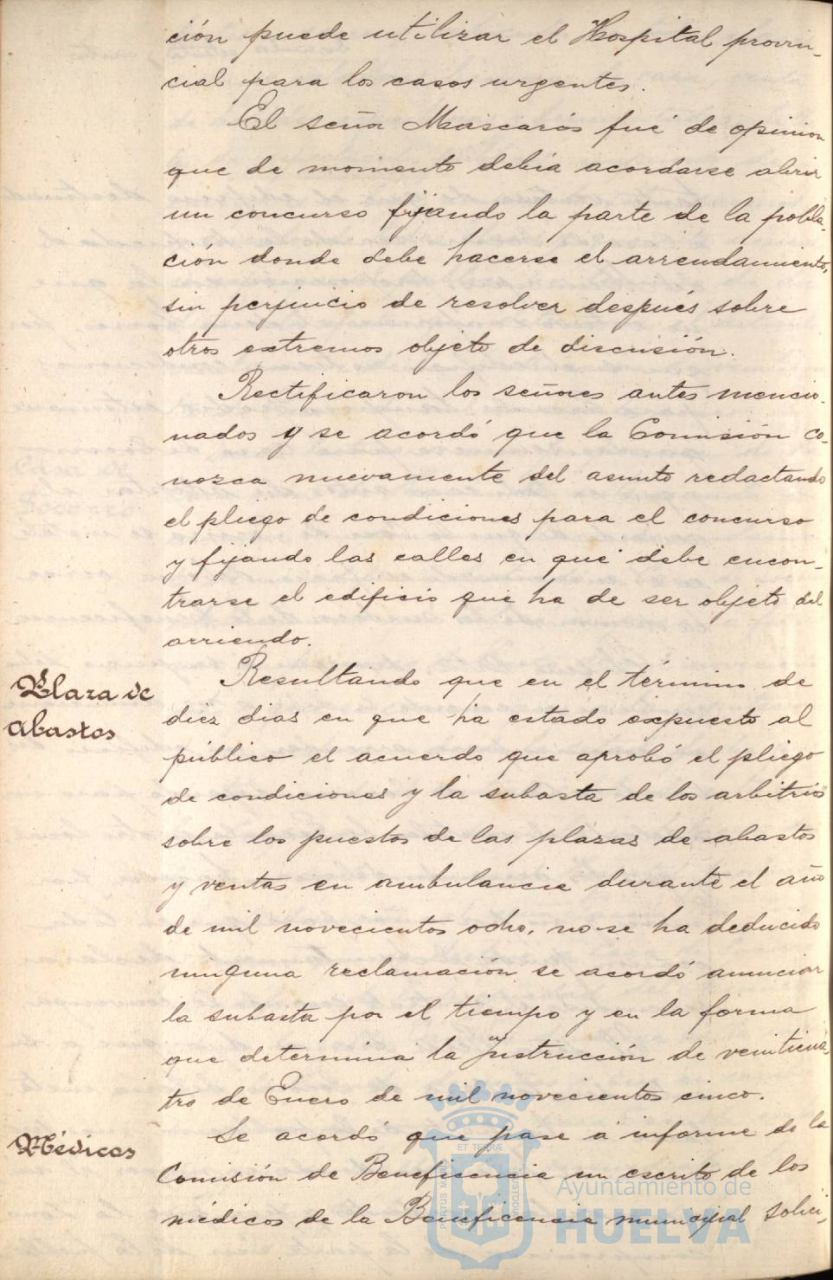 ción puede utilizar el Hospital provin-
cial para los casos urgentes.
El señor Mascarós fué de opinion
que de momento debia acordarse abrir
un concurso fijando la parte de la pobla-
ción donde debe hacerse el arrendamiento,
sin perjuicio de resolver después sobre
otros extremos objeto de discusión.
Rectificaron los señores antes mencio-
nados y se acordó que la Comisión co-
nozca nuevamente del asunto redactando
el pliego de condiciones para el concurso
y fijando las calles en que debe encon-
trarse el edificio que ha de ser objeto del
arriendo.
Plaza de
abastos
Resultando que en el término de
diez dias en que ha estado expuesto al
público el acuerdo que aprobó el pliego
de condiciones y la subasta de los arbitrios
sobre los puestos de las plazas de abastos
y ventas en ambulancia durante el año
de mil novecientos ocho, no se ha deducido
ninguna reclamación se acordó anunciar
la subasta por el tiempo y en la forma
que determina la Instrucción de veinticua-
tro de Enero de mil novecientos cinco.
Médicos
Se acordó que pase á informe de la
Comisión de Beneficencia un escrito de los
médicos de la Beneficencia municipal solici-
Ayuntamiento de
HUELVA